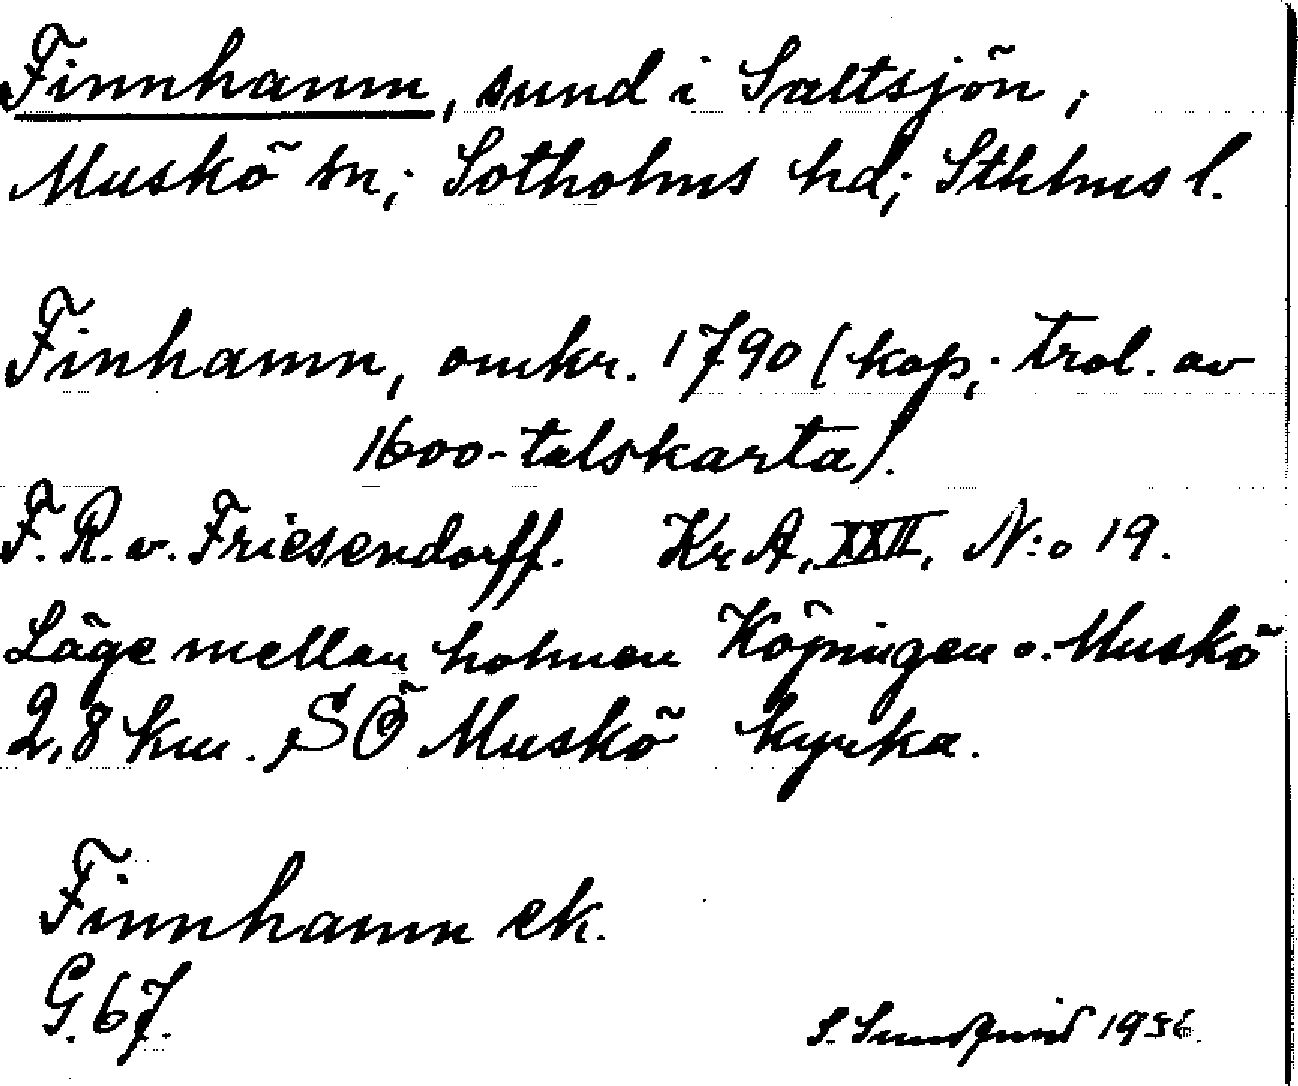 Finnhamn, sund i Saltsjön,
Muskö sn; Sotholms hd; Sthlms l.
Finhamn, omkr. 1790 (kop; trol. av
1600-talskarta).
F. R. v. Friesendorff. Kr A, XXII, N:o 19.
Läge mellan holmen Köpingen o. Muskö
2,8 km. SÖ Muskö kyrka.
Finnhamn ek.
G. 67.
S. Sundqvist 1936.